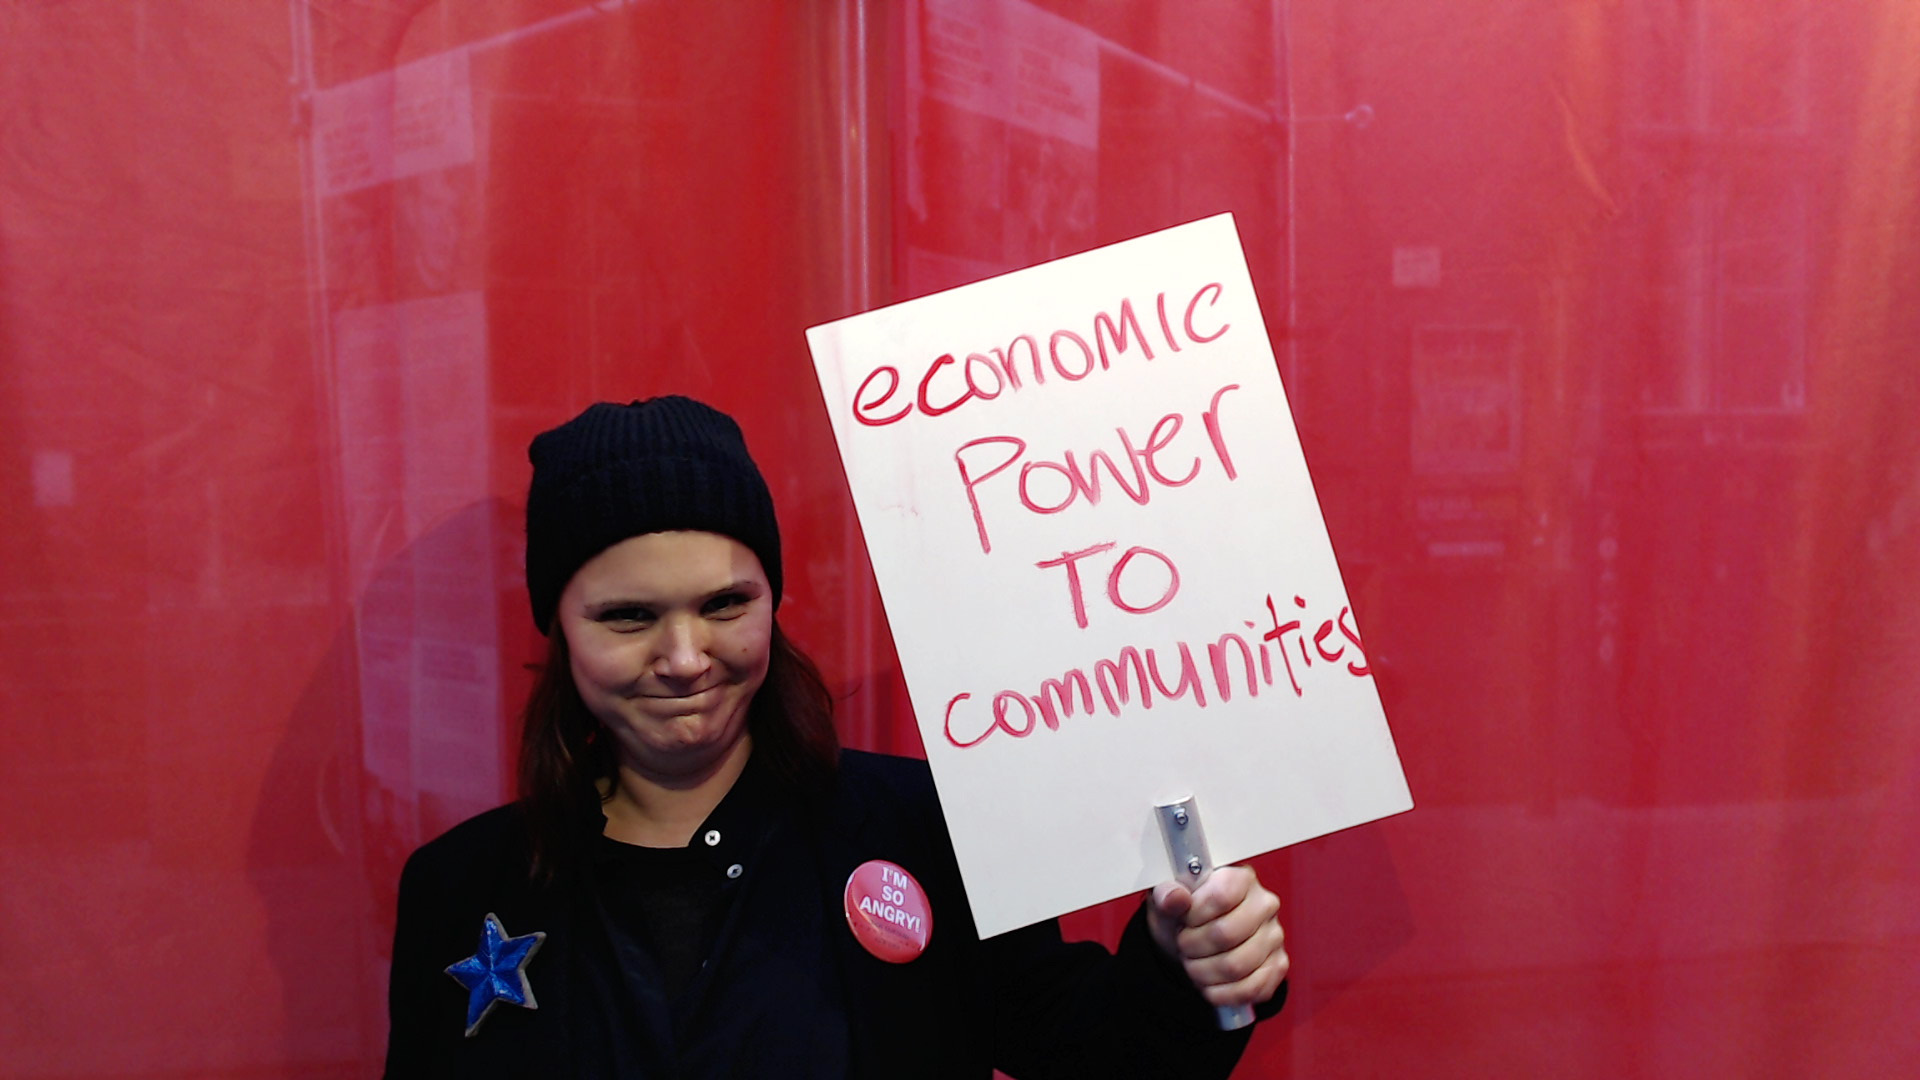 economic
Power
TO
communities
I'M
SO
ANGRY!